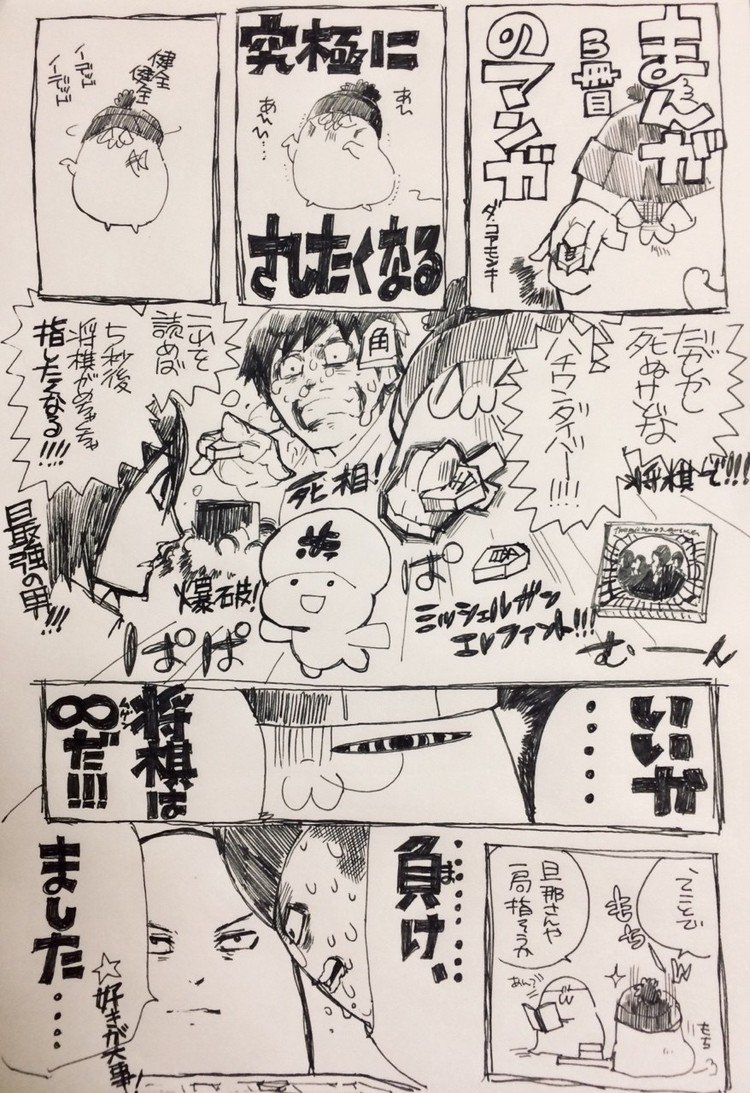 まんが
3冊目
のマンガ
ダ・コアモンキー
究極に
されたくなる
あい
あいい…
健全
健全
イーデッゴ
イーデッゴ
だがしかし
死ぬけどな
将棋で!!!
ハチワンダイバー!!!
角
これを
読めば
5秒後
将棋がめちゃくちゃ
指したくなる!!!!
死相!
目最強の男!!!
爆破!
歩
ぱ
ぱぱ
ミッシェルガン
エレファント!!!
むーん
いいや
・・・・
将棋は
∞だ!!!
・・・・・負け、
ま
ました・・・・
☆好きが大事!
ってことで
もち
旦那さんや
一局指そうか
あんで
もち